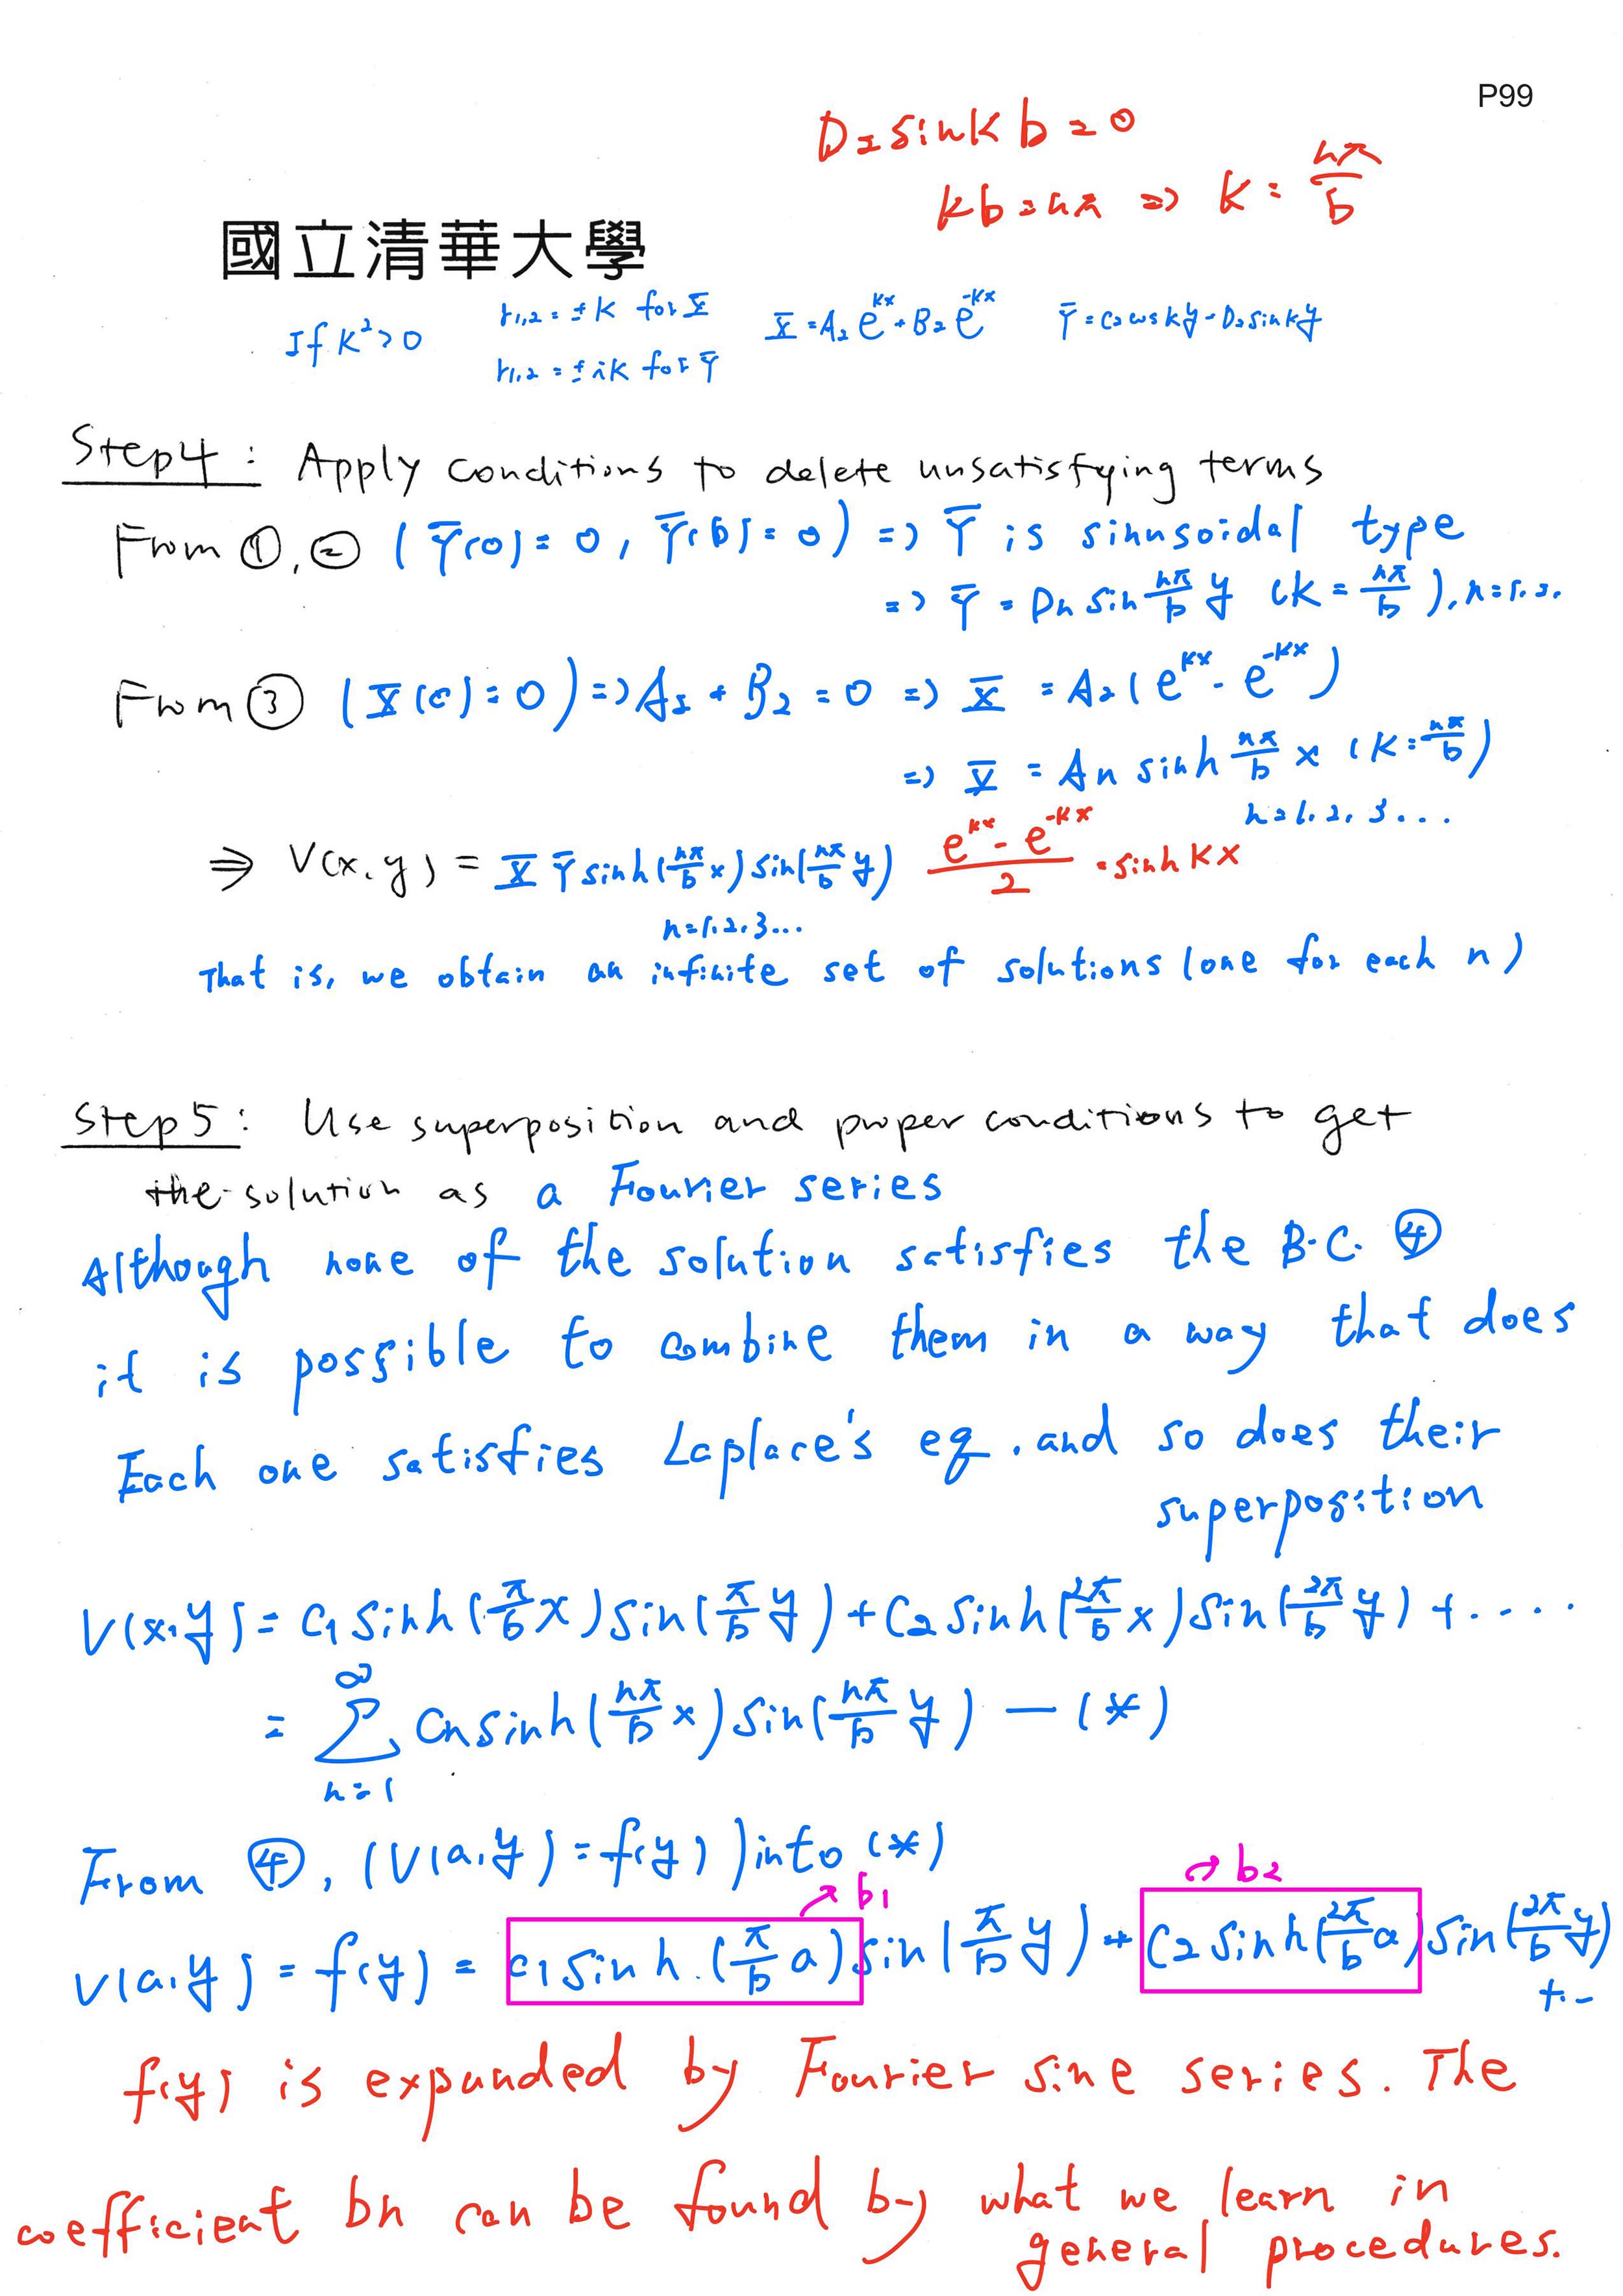 P99
D₂ sin k b = 0
kb = nπ => k = nπ/b
國立清華大學
If k² > 0
r₁,₂ = ± k for X̄
X̄ = A₂ e^{kx} + B₂ e^{-kx}
Ȳ = C₂ cos ky + D₂ sin ky
r₁,₂ = ± ik for Ȳ
Step4 : Apply conditions to delete unsatisfying terms
From ①, ② ( Ȳ(0) = 0, Ȳ(b) = 0 ) => Ȳ is sinusoidal type
=> Ȳ = Dn sin nπ/b y (k = nπ/b), n=1.2.
From ③ ( X̄(0) = 0 ) => A₂ + B₂ = 0 => X̄ = A₂ ( e^{kx} - e^{-kx} )
=> X̄ = An sinh nπ/b x (k = nπ/b)
n=1. 2. 3 ...
⇒ V(x, y) = X̄ Ȳ sinh(nπ/b x) sin(nπ/b y)
(e^{kx} - e^{-kx})/2 = sinh kx
n=1.2.3...
That is, we obtain an infinite set of solutions (one for each n)
Step5 : Use superposition and proper conditions to get
the solution as a Fourier series
Although none of the solution satisfies the B.C. ④
it is possible to combine them in a way that does
Each one satisfies Laplace's eq. and so does their
superposition
V(x,y) = C₁ sinh(π/b x) sin(π/b y) + C₂ sinh(2π/b x) sin(2π/b y) + ....
= ∑_{n=1}^{∞} Cn sinh(nπ/b x) sin(nπ/b y) — (*)
From ④, (V(a,y) = f(y)) into (*)
→ b₁
→ b₂
V(a,y) = f(y) = C₁ sinh.(π/b a) sin(π/b y) + C₂ sinh(2π/b a) sin(2π/b y)
+..
f(y) is expanded by Fourier sine series. The
coefficient bn can be found by what we learn in
general procedures.